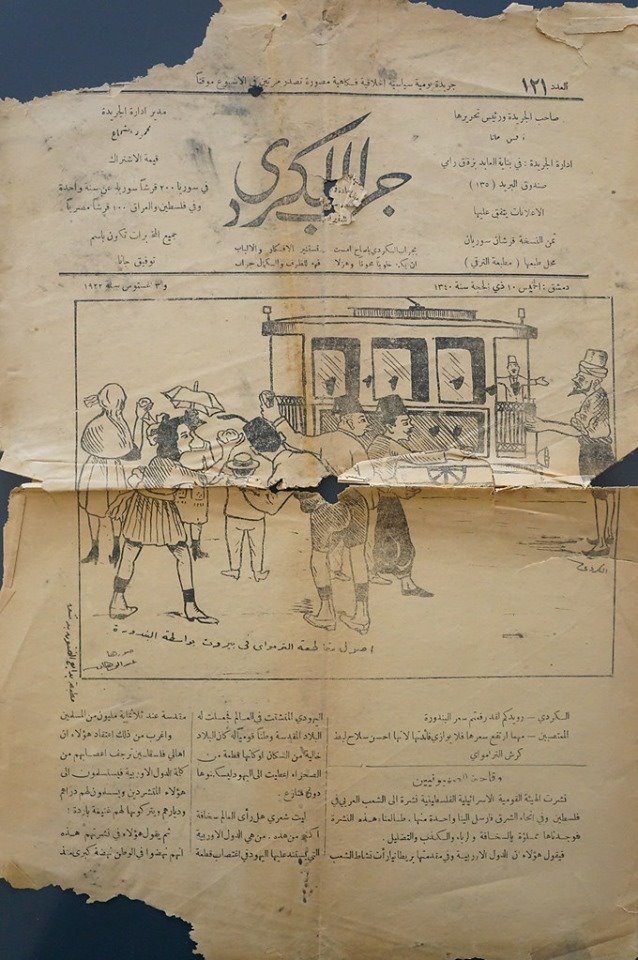 العدد ١٢١
جريدة يومية سياسية اخلاقية فكاهية مصورة تصدر مرتين في الاسبوع موقتاً
صاحب الجريدة ورئيس تحريرها
ادارة الجريدة : في بناية العابد بزقاق رامي
صندوق البريد (١٣٥)
الاعلانات يتفق عليها
ثمن النسخة قرشان سوريان
محل طبعها ( مطبعة الترقي )
جراب الكردي
مدير ادارة الجريدة
قيمة الاشتراك
في سوريا ٢٠٠ قرشاً سورية عن سنة واحدة
وفي فلسطين والعراق ١٠٠ قرشاً مصرياً
جميع المخابرات تكون باسم
توفيق جانا
دمشق : الخميس ١٠ ذي الحجة سنة ١٣٤٠
و ٣ اغستوس سنة ١٩٢٢
الكردي
اصول مقاطعة الترمواي في بيروت بواسطة البندورة
الكردي — رويدكم لقد رفعتم سعر البندورة
المتعصبين — مهما ارتفع سعرها فلا يوازي فائدتها لانها احسن سلاح لبط
كرش الترامواي
وقاحة الصهيونيين
نشرت الهيئة القومية الاسرائيلية الفلسطينية نشرة الى الشعب العربي في
فلسطين وفي انحاء الشرق فارسل الينا واحدة منها، طالعنا هذه النشرة
فوجدناها مملؤة بالسخافة والرياء والكذب والتضليل.
فيقول هؤلاء ان الدول الاوربية وفي مقدمتها بريطانيا رأت نشاط الشعب
اليهودي المتشتت في العالم فجعلت له
البلاد المقدسة وطناً قومياً كأن البلاد
خالية من السكان او كأنها قطعة من
الصحراء اعطيت الى اليهود ليسكنوها
دون منازع
ليت شعري هل رأى العالم سخافة
اكبر من هذه . من هي الدول الاوربية
التي يستند عليها اليهود في اغتصاب قطعة
مقدسة عند ثلاثماية مليون من المسلمين
واغرب من ذلك اعتقاد هؤلاء ان
اهالي فلسطين ترجف اعصابهم من
كلمة الدول الاوربية فيستسلمون الى
هؤلاء المتشردين ويسلمون لهم دراهم
وديارهم ويتركونها لهم غنيمة باردة :
ثم يقول هؤلاء في نشرتهم هذه
انهم نهضوا في الوطن نهضة كبرى منذ